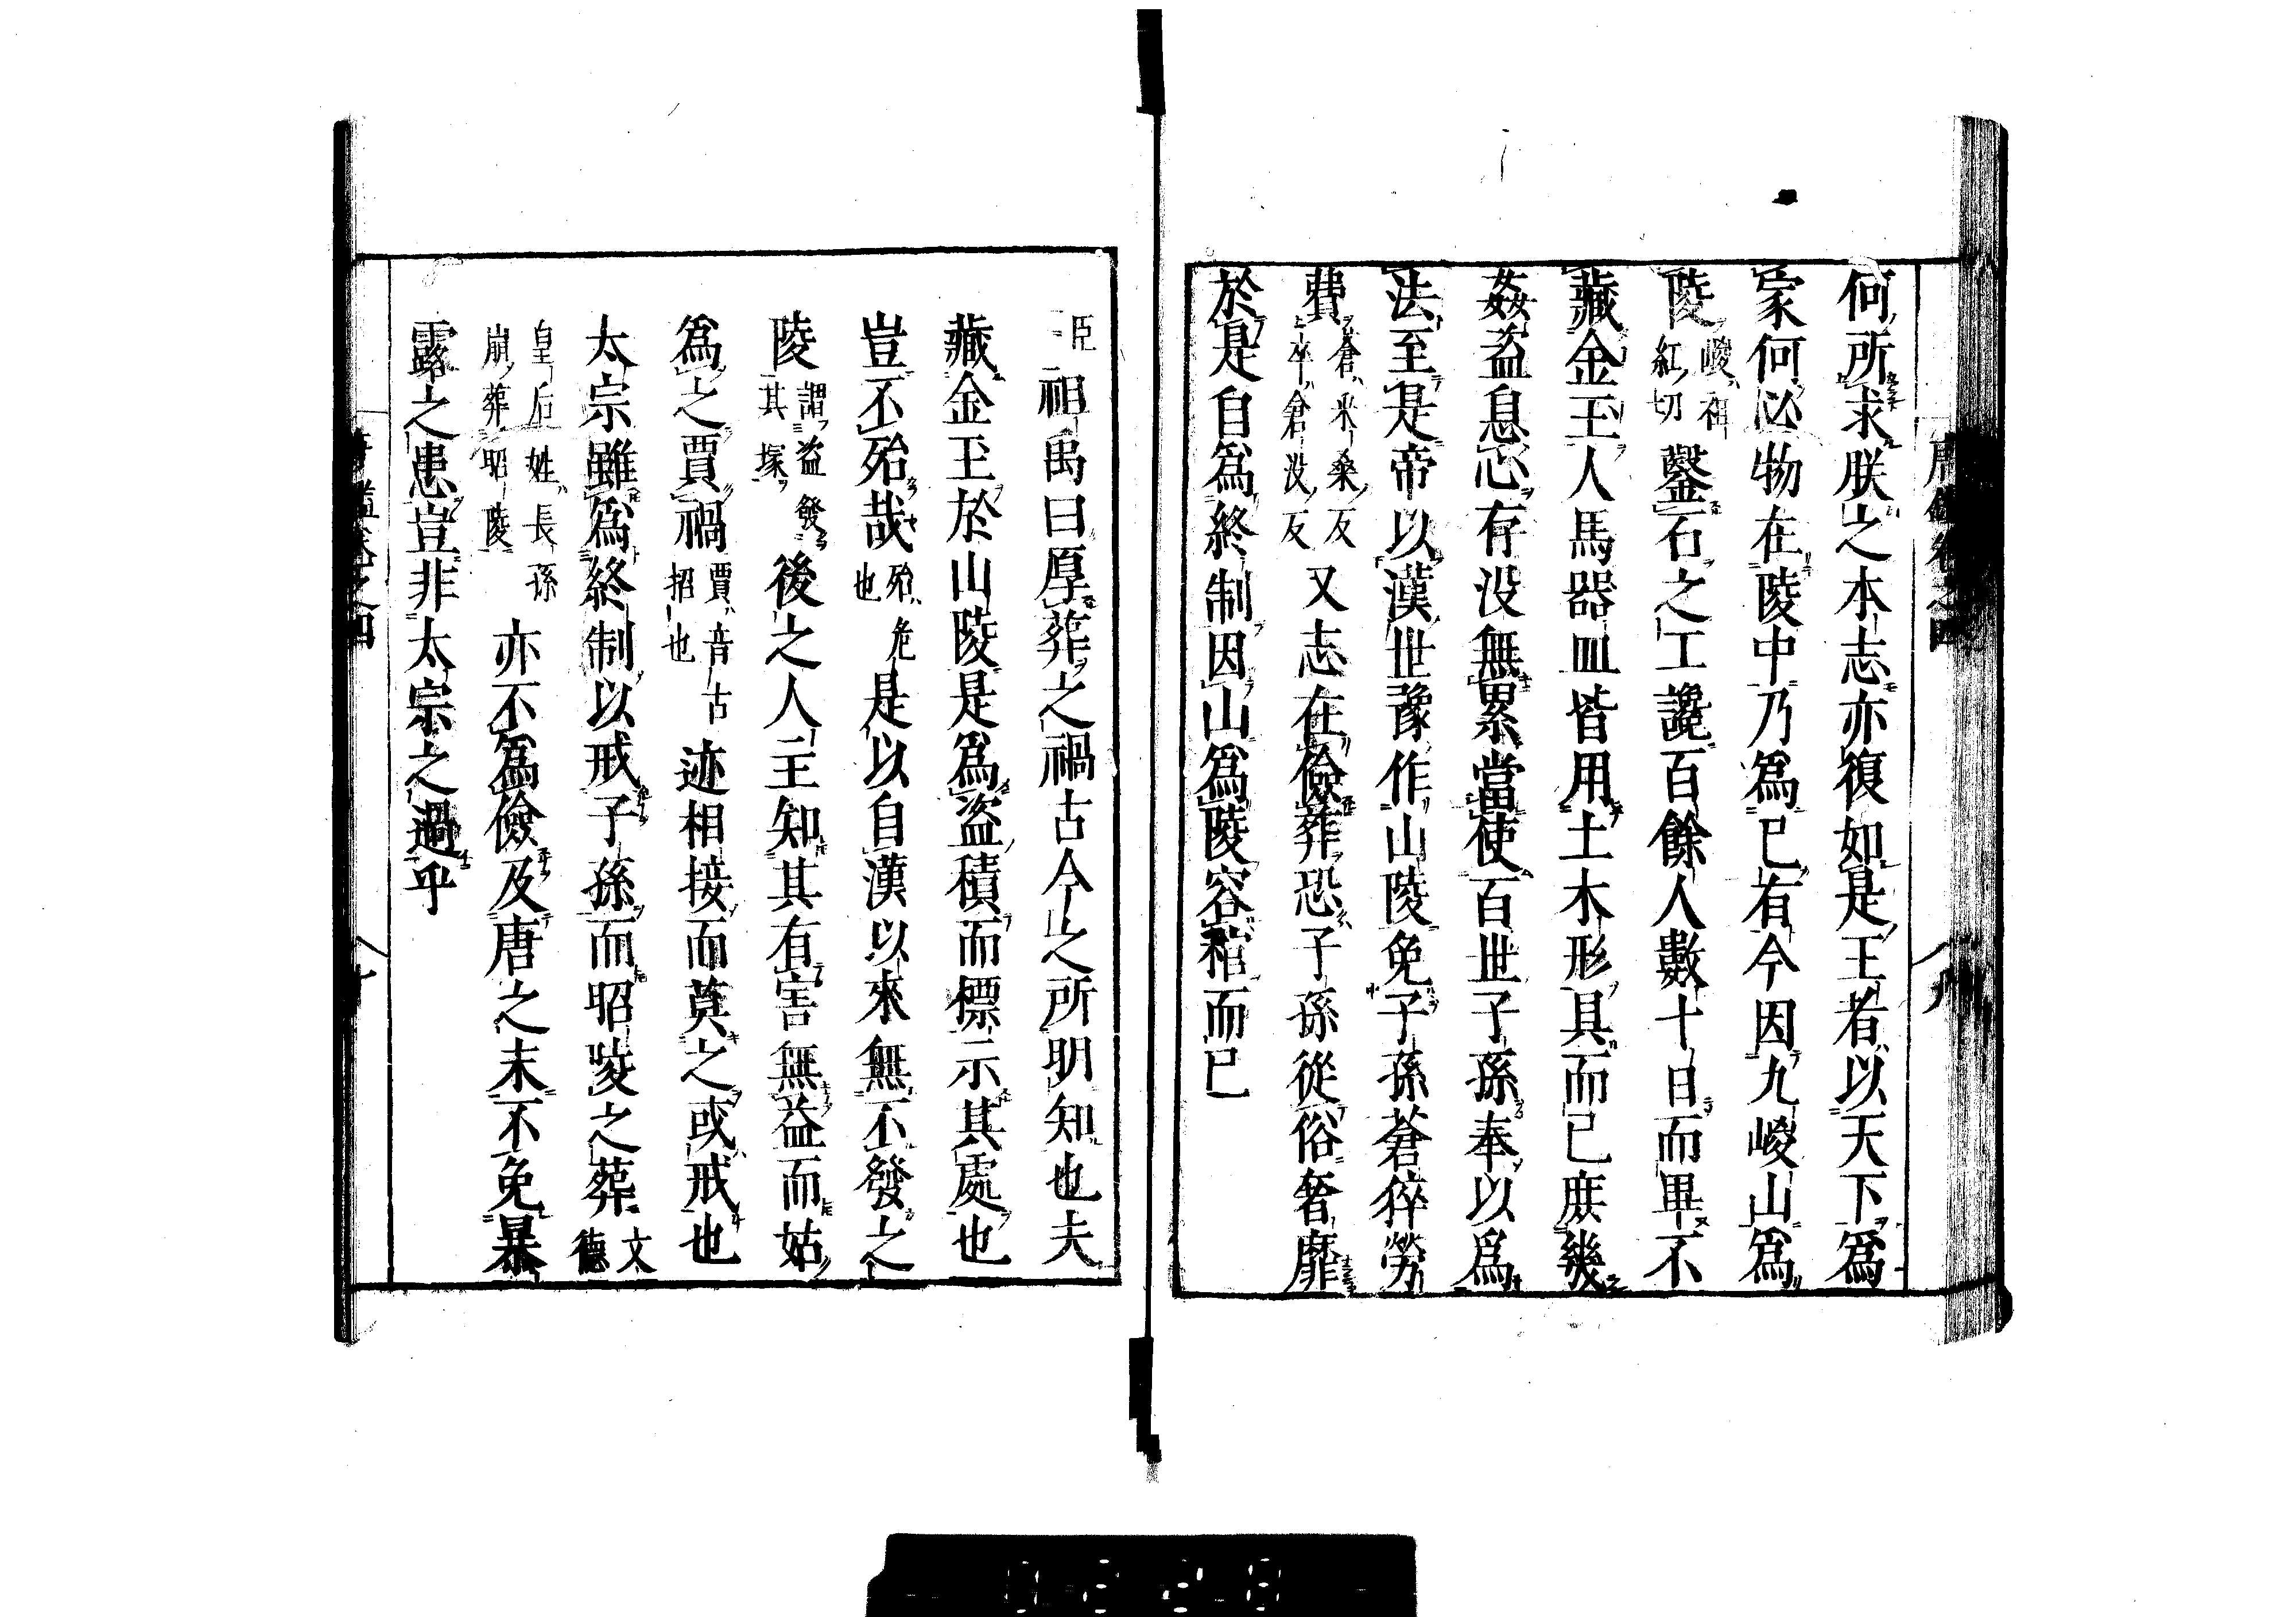 何所求朕之本志亦復如是王者以天下爲
家何必物在陵中乃爲已有今因九嵕山爲
陵嵕祖紅切鑿石之工纔百餘人數十日而畢不
藏金玉人馬器皿皆用土木形具而已庶幾
姦盗息心存没無累當使百世子孫奉以爲
法至是帝以漢世豫作山陵免子孫蒼猝勞
費蒼米桑反卒倉没反又志在儉葬恐子孫從俗奢靡
於是自爲終制因山爲陵容棺而已
臣祖禹曰厚葬之禍古今之所明知也夫
藏金玉於山陵是爲盗積而標示其處也
豈不殆哉殆危也是以自漢以來無不發之
陵謂盗發其塚後之人主知其有害無益而姑
爲之賈禍賈音古招也迹相接而莫之或戒也
太宗雖爲終制以戒子孫而昭陵之葬文德
皇后姓長孫崩葬昭陵亦不爲儉及唐之末不免暴
露之患豈非太宗之過乎